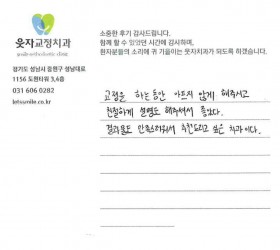 웃자교정치과
youth orthodontic clinic
경기도 성남시 중원구 성남대로
1156 도현타워 3,4층
031 606 0282
letssmile.co.kr
소중한 후기 감사드립니다.
함께 할 수 있었던 시간에 감사하며,
환자분들의 소리에 귀 기울이는 웃자치과가 되도록 하겠습니다.
교정을 하는동안 아프지 않게 해주시고
친절하게 설명도 해주셔서 좋았다.
결과물도 만족스러워서 추천드리고 싶은 치과이다.